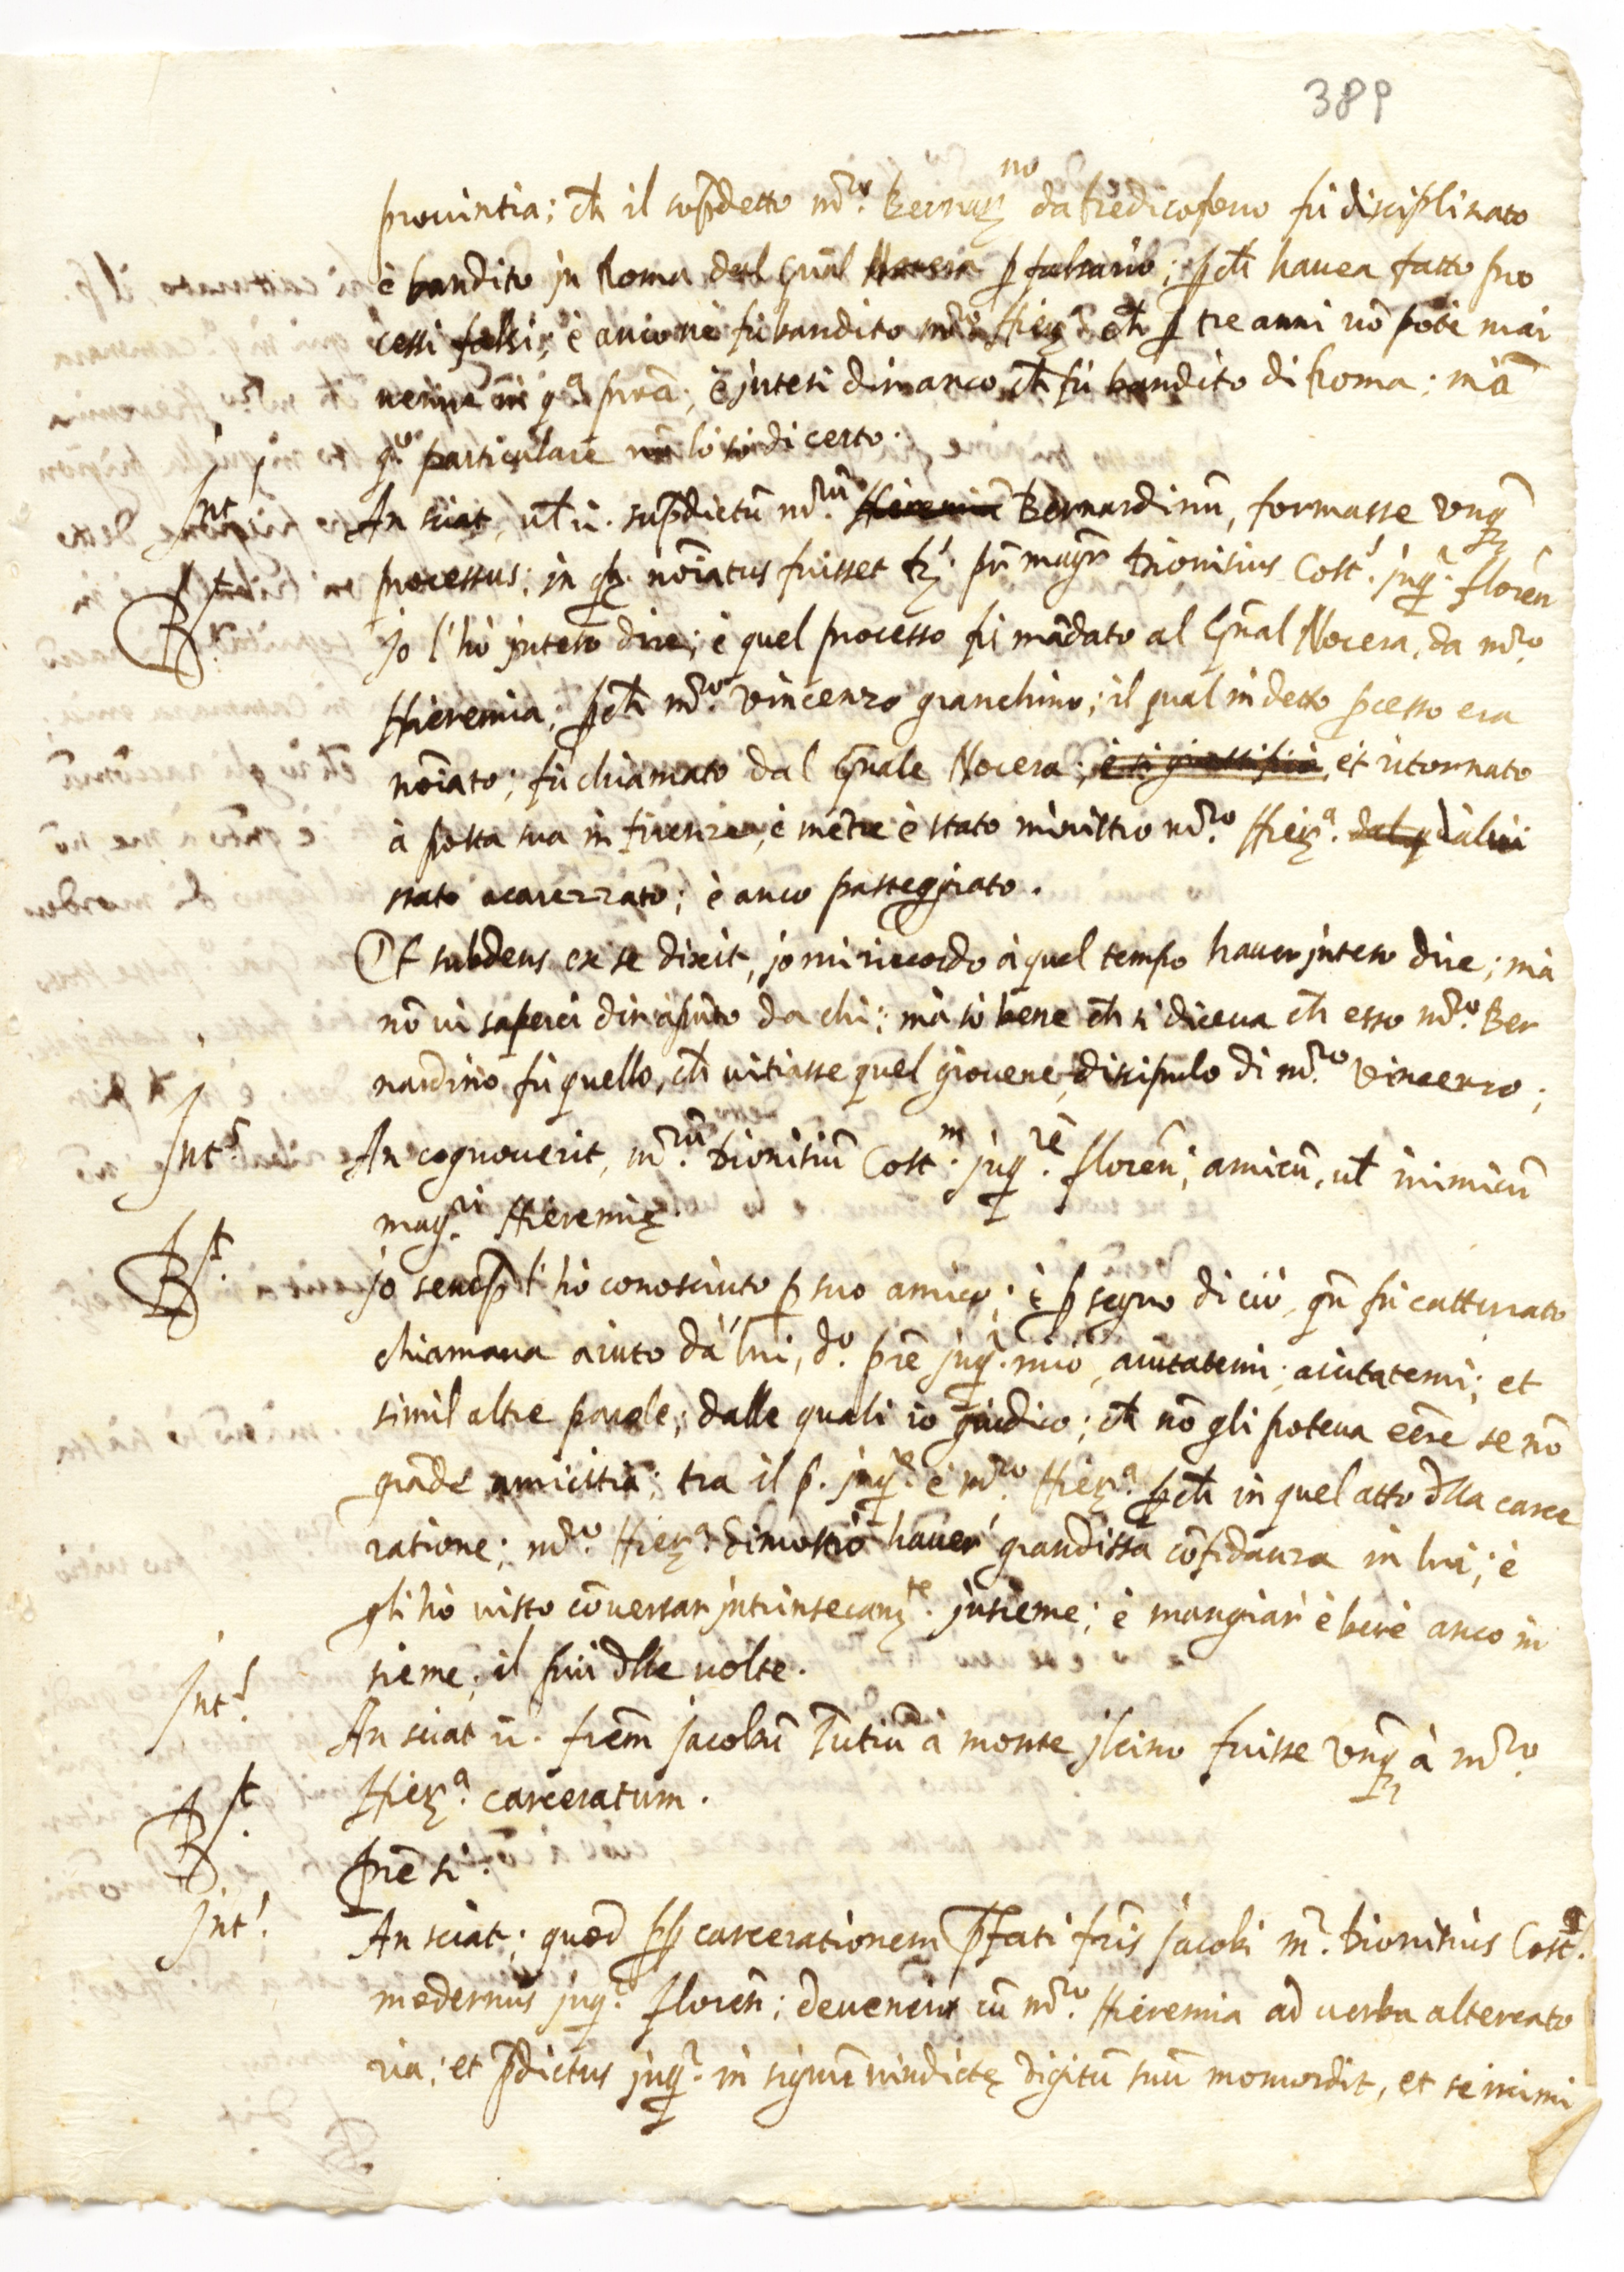 389
prouintia; ch̄ il sop̄detto mr̄o. Bernar.no da fu disciplinato
è bandito in Roma dal Gn̄al p falsario; p ch̄ hauea fatto pro
cessi falsi; è anco ne fù bandito mr̄o Hier.a ch̄ p tre anni nō potè mai
uenire in q.a prōa; è intesi dir anco, ch̄ fù bandito di Roma; mà
q.o particulare nō lo sò di certo.
Int.s An sciat, ul̄ n. sup̄dictū mr̄ū. Hieremiā Bernardinū, formasse unq̄
processus; in q. nōiatus fuisset fr. pr̄ magr̄ Dionisius Cost.s inq.r florēn
R.t Jo l'hò inteso dire; è quel processo fù mādato al Gn̄al Nocera, da mr̄o.
Hieremia; p ch̄ mr̄o. Vincenzo granchino; il qual in detto p̄cesso era
nōiato; fù chiamato dal Gn̄ale Nocera; è si giustificò, et ritornato
à posta sua in firenze, è mētre è stato ministro mr̄o. Hier.a. dal q dà lui
stato acarezzato; è anco passeggiato.
Et subdens ex se dixit, jo mi riccordo à quel tempo hauer inteso dire; mà
nō ui saperei dir apūto da chi; mà sò bene ch̄ si diceua ch̄ esso mr̄o. Ber
nardino fù quello, ch̄ uitiasse quel giouene, discipulo di mr̄o. Vincenzo;
Int.s An cognouerit, mr̄ū. Dionisiū Cost.m inq.rē florēn, amicū, ul̄ inimicū
mag.ri Hieremię.
R.t Jo semp̄ l'hò conosciuto p suo amico; è p segno di ciò, qn̄ fù catturato
chiamaua aiuto dà lui, d.o prē inq.r mio, aiutatemi; aiutatemi; et
simil altre parole; dalle quali io giudico; ch̄ nō gli poteua eēre se nō
grāde amicitia; tra il p. inq.re è mr̄o. Hier.a. p ch̄ in quel atto dlla carce
ratione; mr̄o. Hier.a. dimostrò hauer grandissa cōfidanza in lui; è
gli hò uisto cōuersar intrinsecam.te. insieme; è mangiar è bere anco in
sieme; il piu dlle uolte.
Int.s An sciat n. frēm Jacobū Tutiū à monte ilcino fuisse unq̄ à mr̄o.
Hier.a. carceratum.
R.t Prē si.
Int.s An sciat; quod pp carcerationem p̄fati frīs Jacobi mr̄. Dionisius Cost.s
modernus inq.r florēn; deuenerit cū mr̄o. Hieremia ad uerba altercato
ria; et p̄dictus inq.r in signum uindictę digitū suū momordit, et se inimi